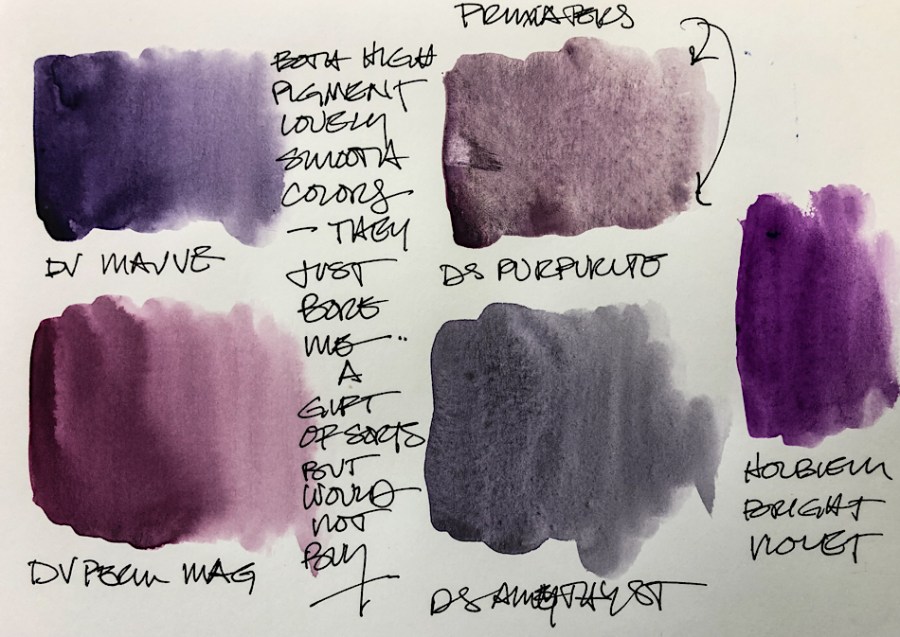 PRIMATEKS
BOTH HIGH
PIGMENT
LOVELY
SMOOTH
COLORS
— THEY
JUST
BORE
ME..
A
GIFT
OF SORTS
BUT
WOULD
NOT
BUY
DV MAUVE
DS PURPURITE
DV PERM MAG
DS AMETHYST
HOLBIEN
BRIGHT
VIOLET